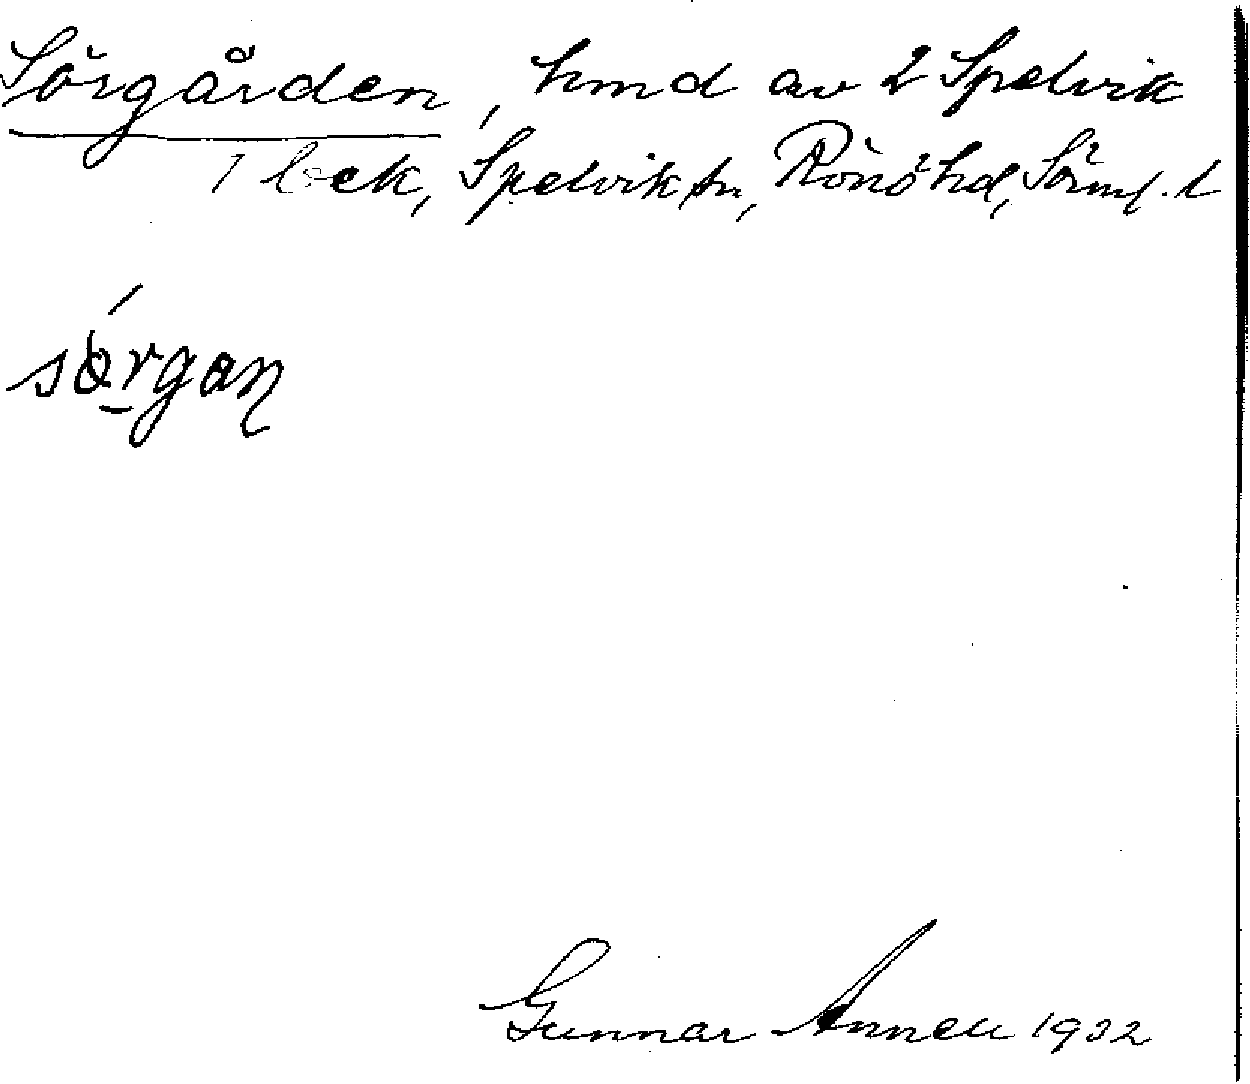 Sörgården, hmd av 2 Spelvik
1 bek, Spelvik sn, Rönö hd, Sörml. l
sörgaɳ
Gunnar Annell 1932